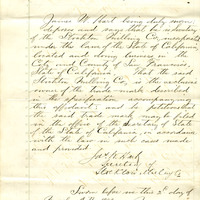 James W. Hart being duly sworn
deposes and says that he is Secretary
of the Stockton Milling Co, incorporated
under the laws of the State of California,
located and doing business in the
City and County of San Francisco,
State of California. That the said
Stockton Milling Co, is the exclusive
owner of the trade mark described
in the specification accompanying
this affidavit; and he petitions that
the said trade mark may be filed
in the office of the Secretary of State
of the State of California, in accordance
with the law in such case made
and provided.
Jas. W. Hart
Secretary of
Stockton Milling Co
Sworn before me this 2d day of